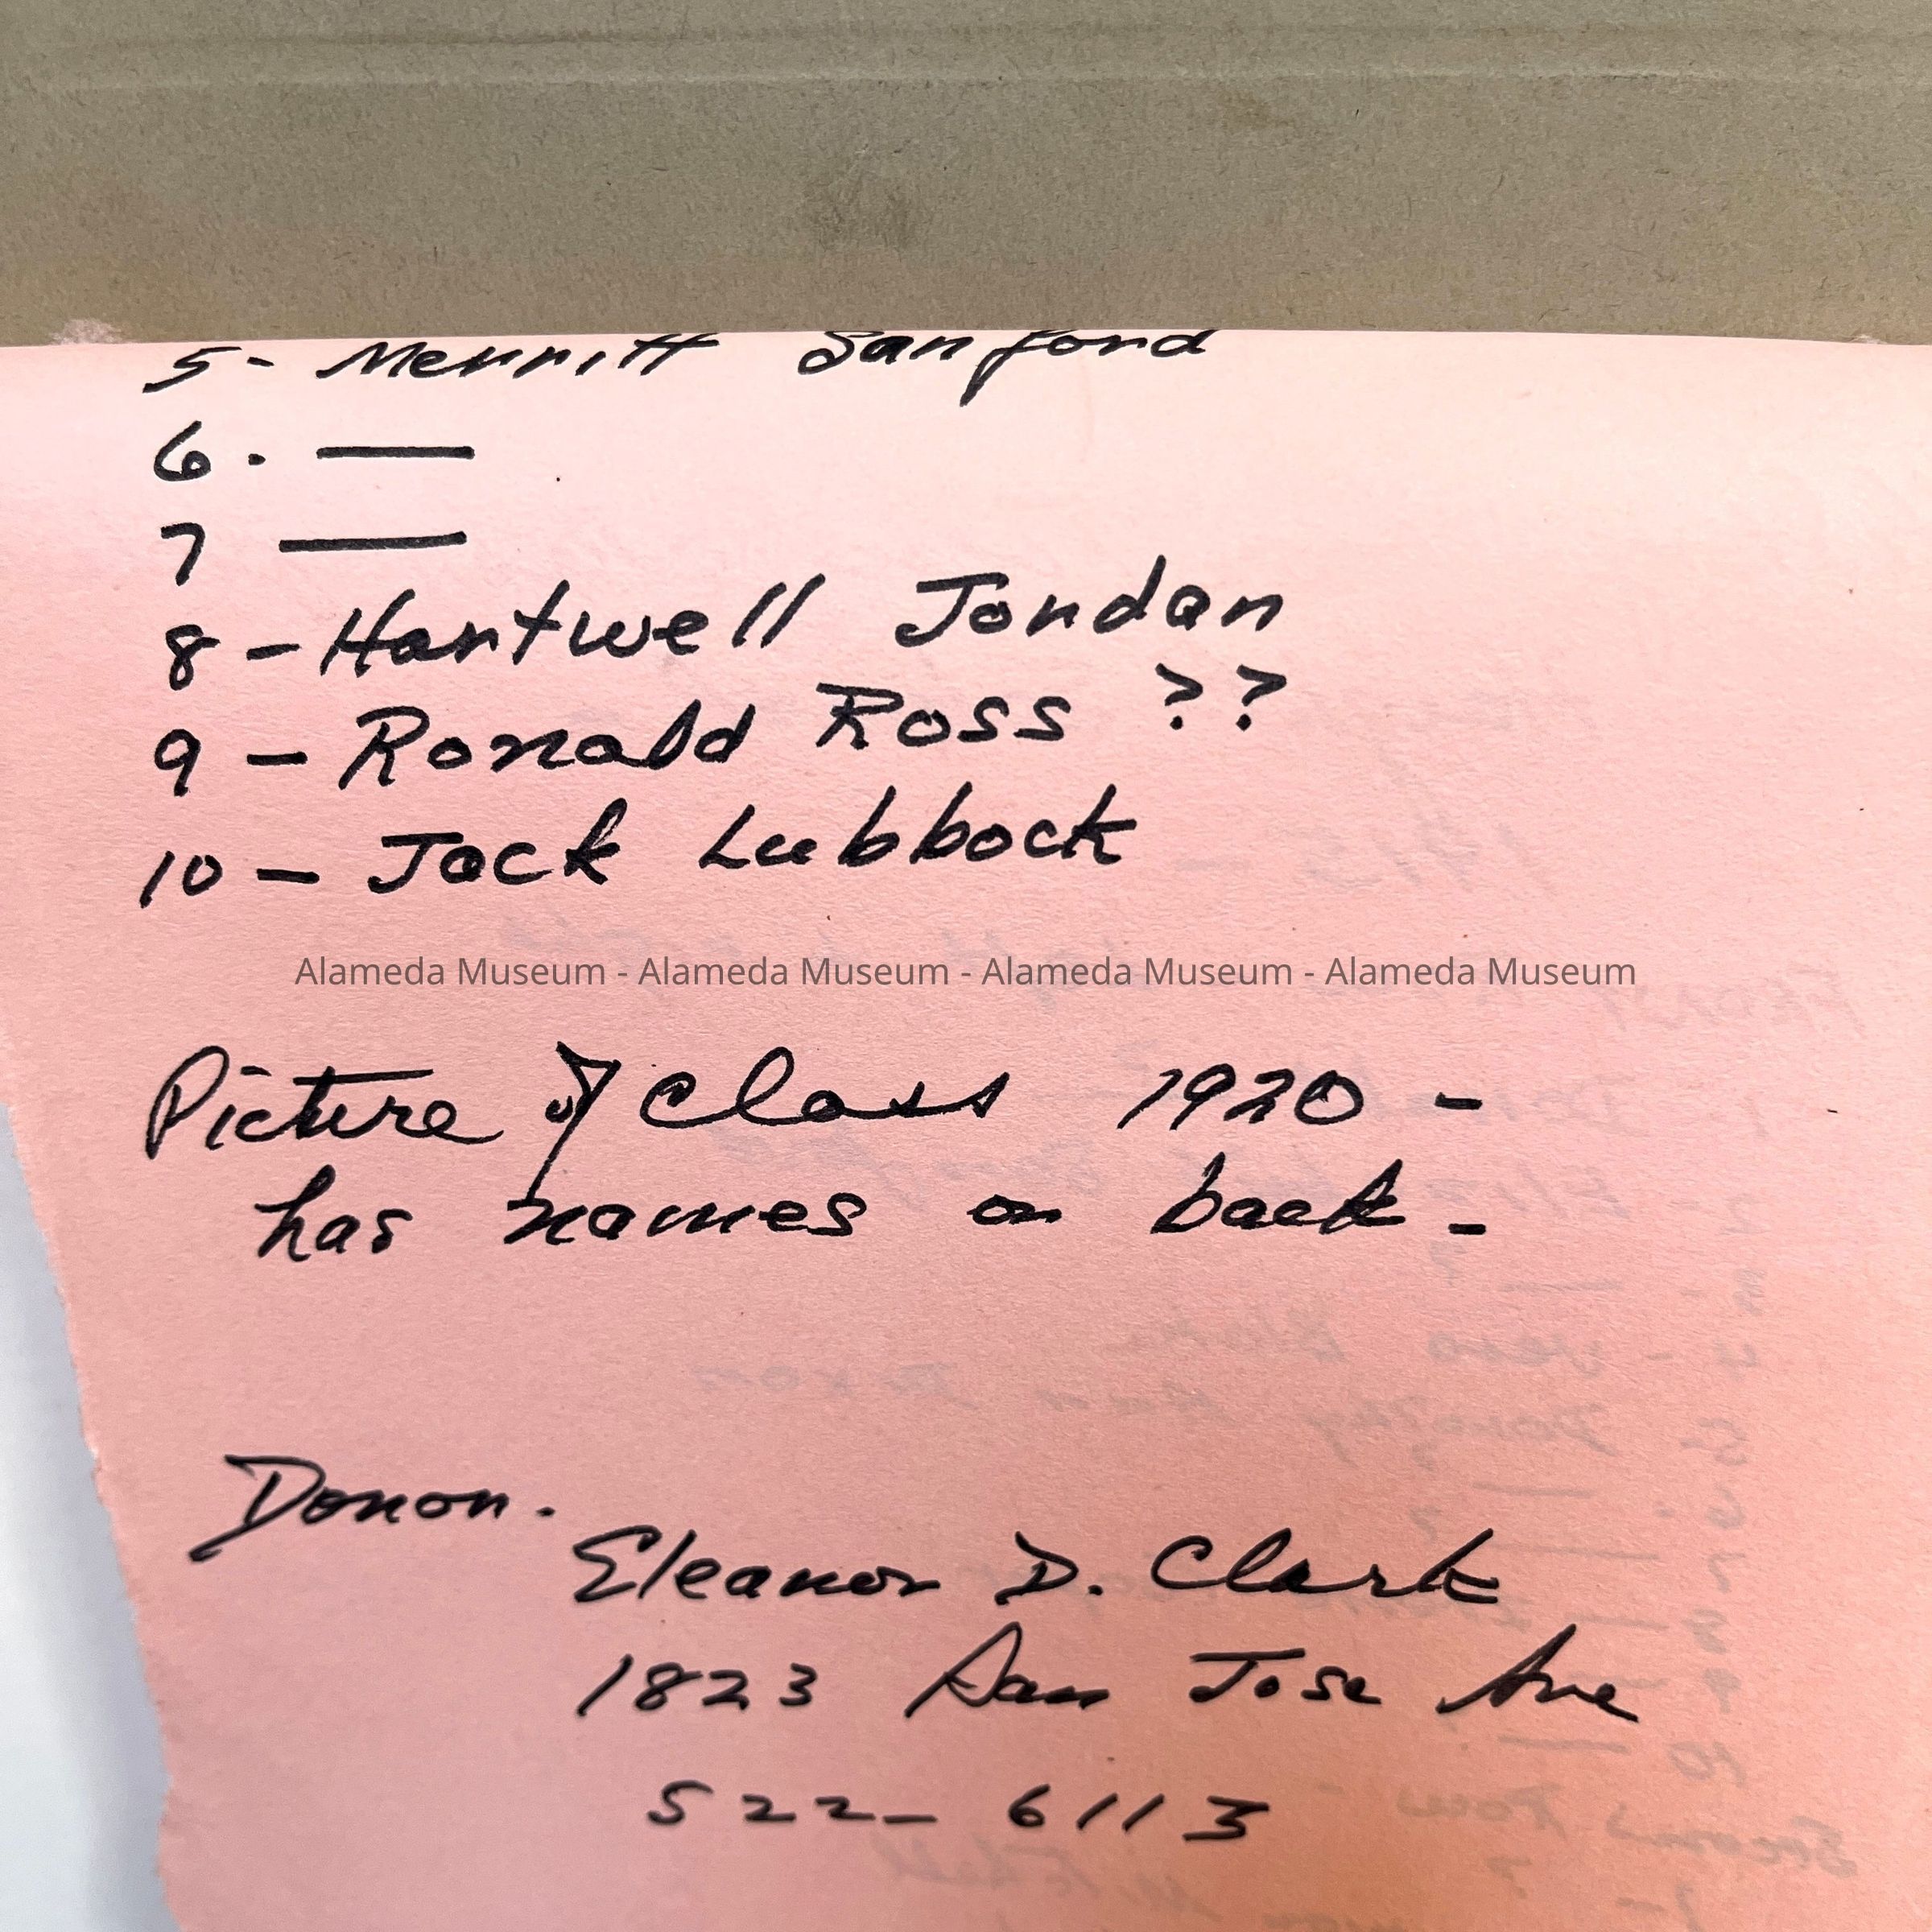 5- Merritt Sanford
6. —
7 —
8 - Hartwell Jordan
9 - Ronald Ross ??
10 - Jack Lubbock
Alameda Museum - Alameda Museum - Alameda Museum - Alameda Museum
Picture of class 1920 -
has names on back -
Donor.
Eleanor D. Clark
1823 San Jose Ave
522- 6113